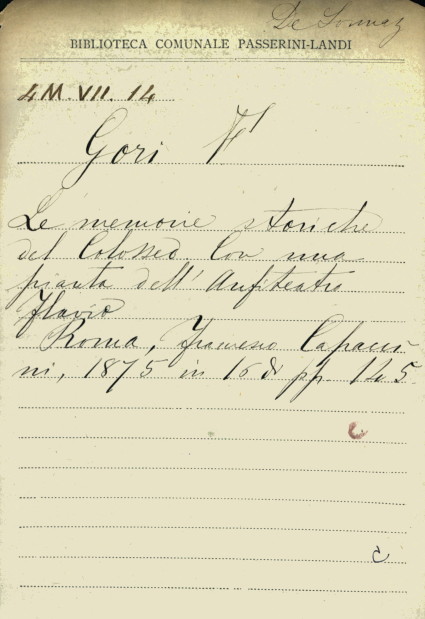 De Sonnaz
BIBLIOTECA COMUNALE PASSERINI-LANDI
4M.VII.14
Gori F
Le memorie storiche
del Colosseo Con una
pianta dell'Anfiteatro
Flavio
Roma, Francesco Capacci-
ni, 1875 in 16º pp. 145.
C
C